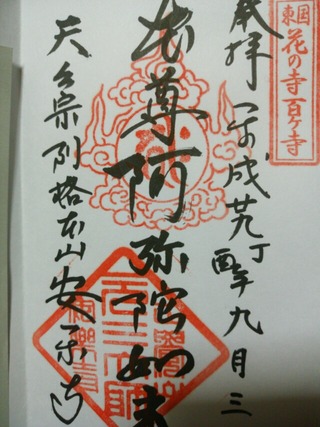 東国
花の寺百ヶ寺
奉拝 平成廿九丁酉年九月三
本尊阿弥陀如来
天台宗別格本山安楽寺